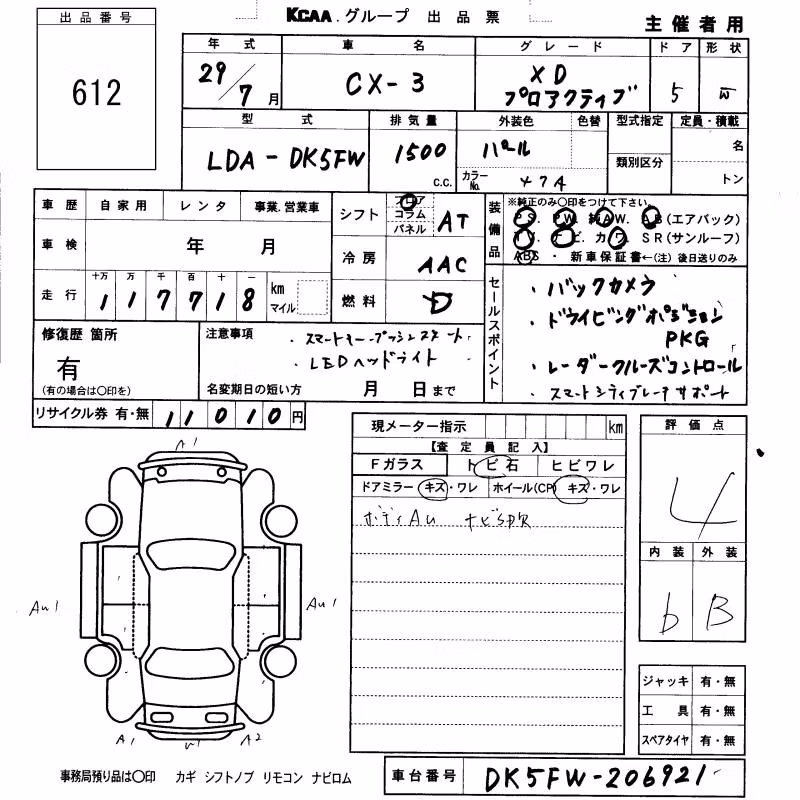 出品番号
612
KCAA.グループ 出品票
主催者用
年式 車名 グレード ドア 形状
29/7月 CX-3 XD プロアクティブ 5 W
型式 排気量 外装色 色替 型式指定 定員・積載
LDA-DK5FW 1500 c.c. パール 名
カラーNo. 47A 類別区分 トン
車歴 自家用 レンタ 事業.営業車
車検 年 月
走行 十万 万 千 百 十 一 km マイル
117718
シフト フロア コラム パネル AT
冷房 AAC
燃料 D
装備品
※純正のみ〇印をつけて下さい。
PS. PW. 純AW. AB(エアバック)
TV. ナビ. カワ. SR(サンルーフ)
ABS ・ 新車保証書←(注)後日送りのみ
セールスポイント
・バックカメラ
・ドライビングポジション
PKG
・レーダークルーズコントロール
・スマートシティブレーキサポート
修復歴 箇所
有
(有の場合は〇印を)
注意事項
・スマートキー・プッシュスタート
・LEDヘッドライト
名変期日の短い方 月 日まで
リサイクル券 有・無 11010円
現メーター指示 km
【査定員記入】
Fガラス トビ石 ヒビワレ
ドアミラー キズ・ワレ ホイール(CP) キズ・ワレ
ボディAu ナビSD欠
評価点
4
内装 外装
b B
A1
Au1 Au1
A1 U1 A2
ジャッキ 有・無
工具 有・無
スペアタイヤ 有・無
事務局預り品は〇印 カギ シフトノブ リモコン ナビロム
車台番号 DK5FW-206921